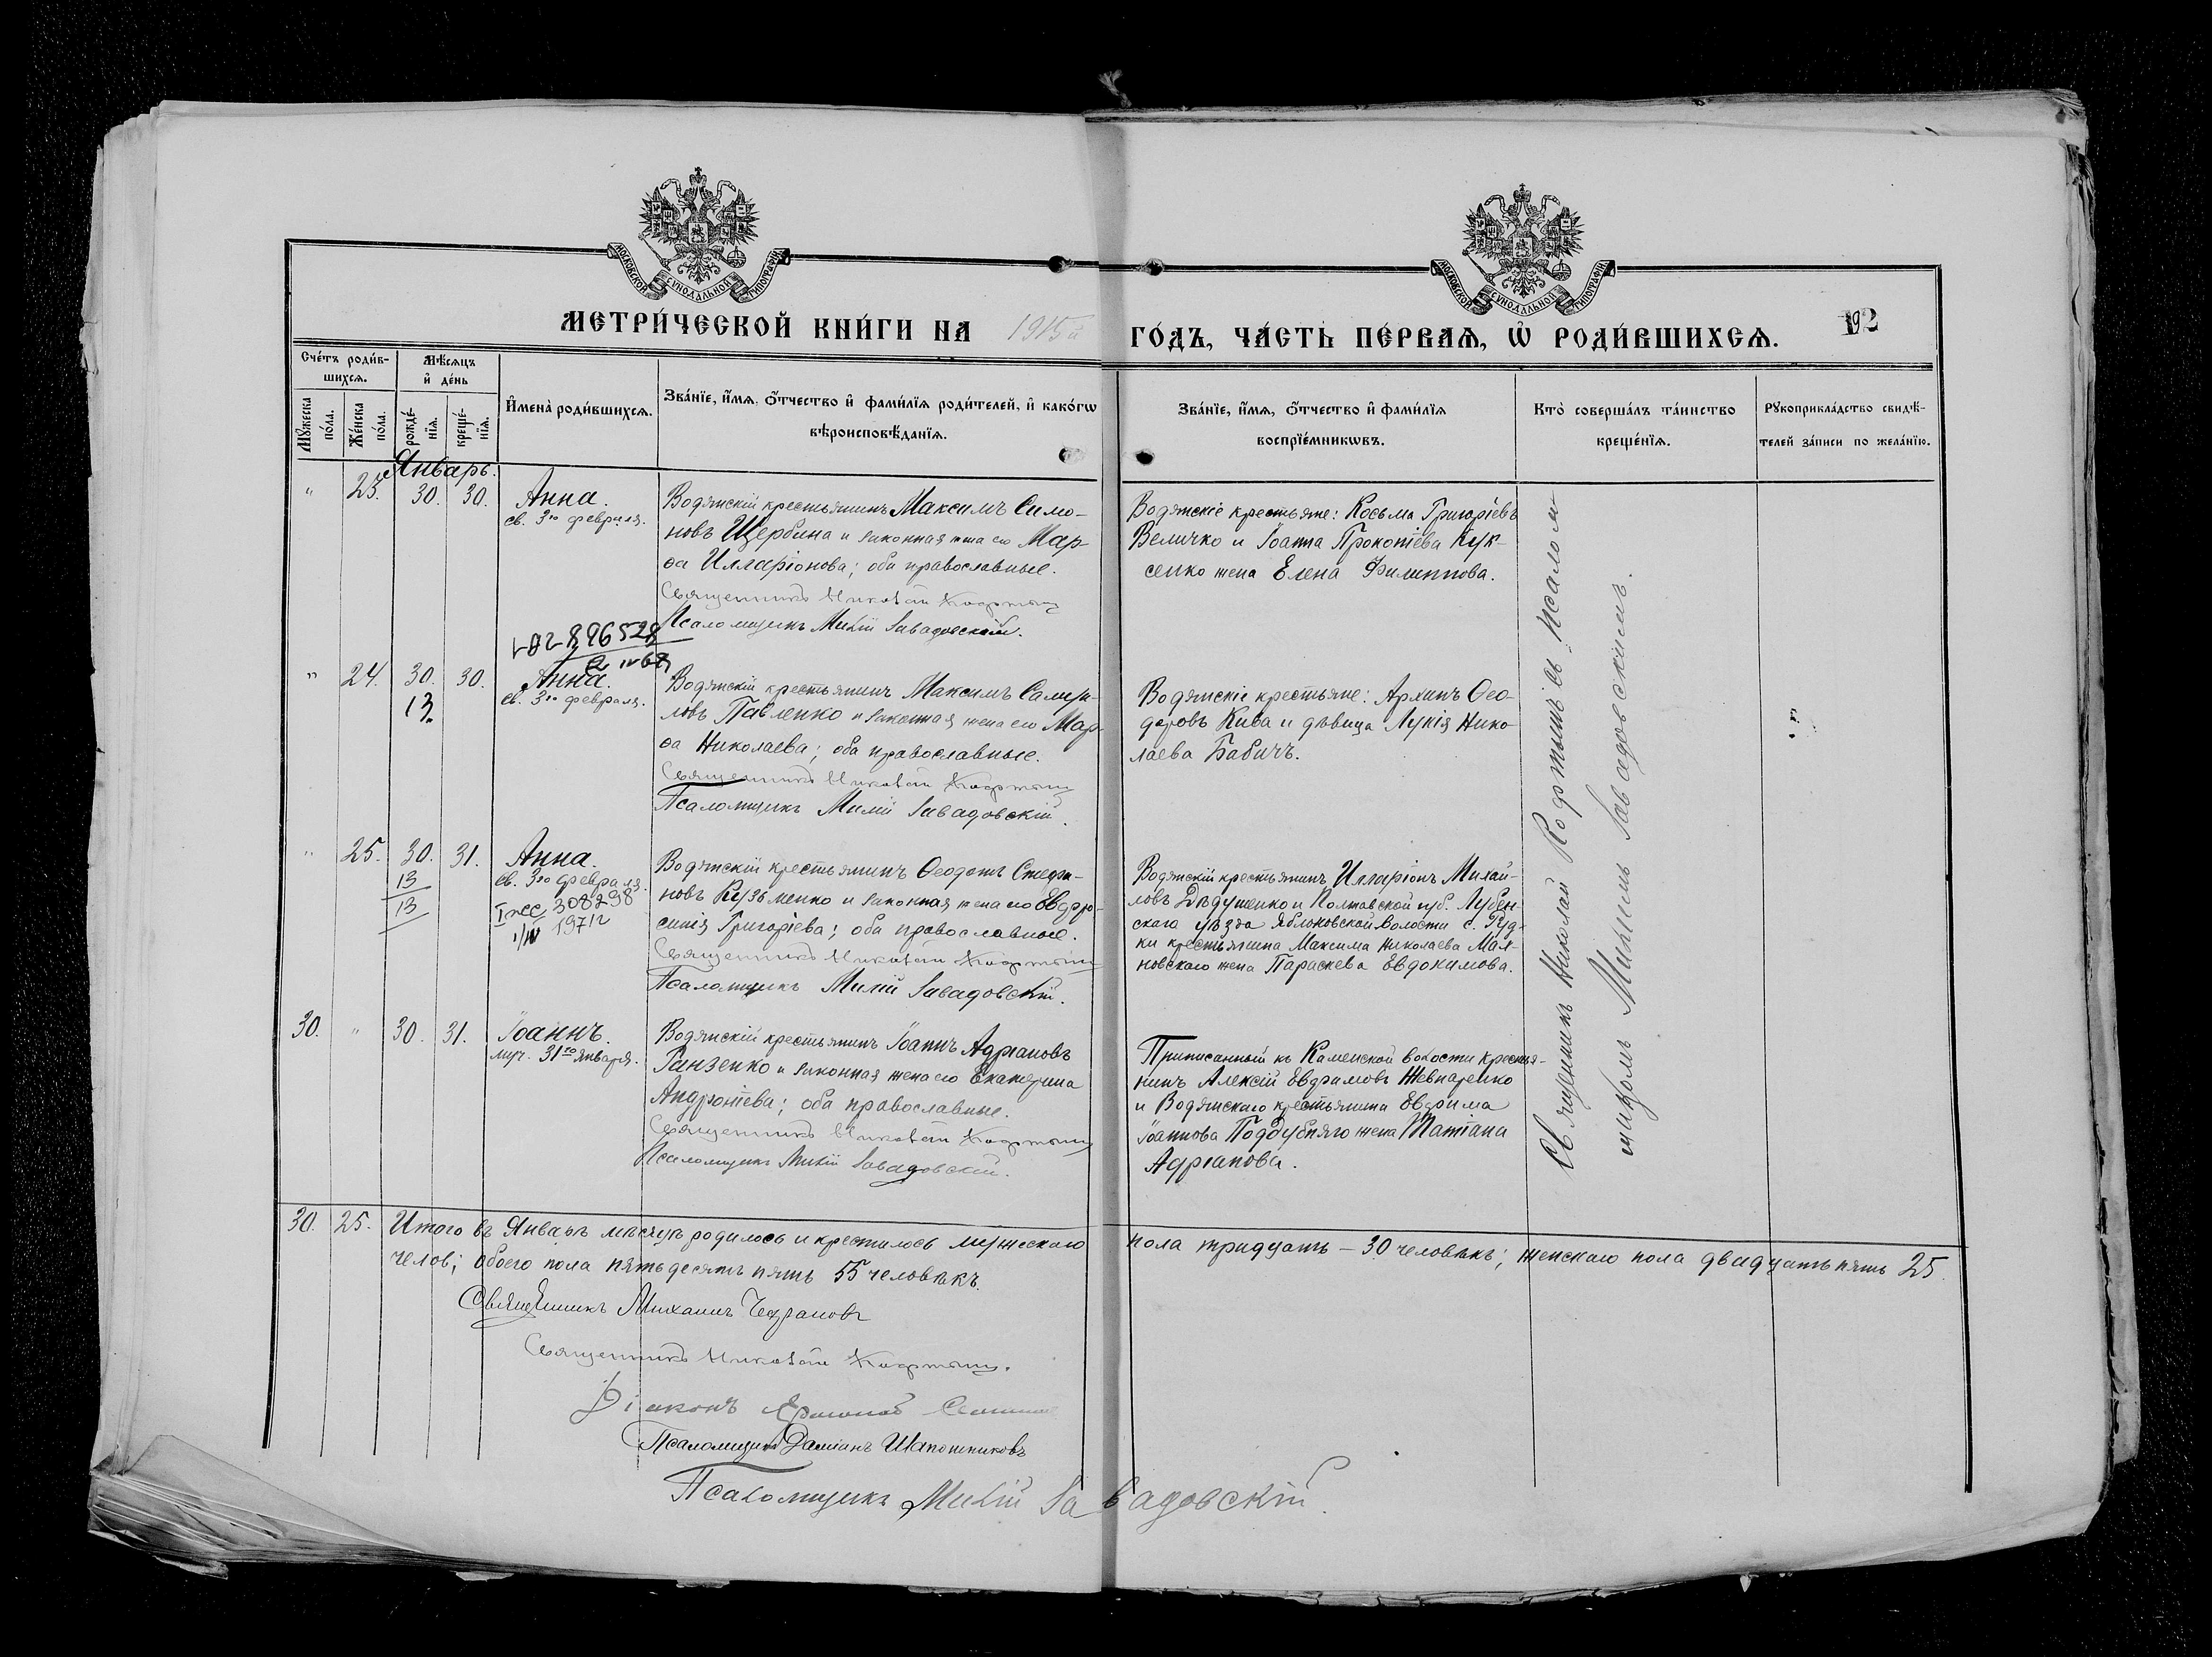 МОСКОВСКОЙ СѴНОДАЛЬНОЙ ТИПОГРАФІИ
МОСКОВСКОЙ СѴНОДАЛЬНОЙ ТИПОГРАФІИ
МЕТРИ́ЧЕСКОЙ КНИ́ГИ НА 1915й ГО́ДЪ, ЧА́СТЬ ПЕ́РВАѦ, Ѡ҆ РОДИ́ВШИХСѦ.
192
Сче́тъ роди́в-
шихсѧ.
Мѣ́сѧцъ
и҆ де́нь
Мꙋ́жеска
по́ла.
Же́нска
по́ла.
рожде́-
нїѧ.
креще́-
нїѧ.
И҆мена̀ роди́вшихсѧ.
Зва́нїе, и҆́мѧ, ѻ҆́тчество и҆ фами́лїѧ роди́телей, и҆ како́гѡ
вѣроисповѣ́данїѧ.
Зва́нїе, и҆́мѧ, ѻ҆́тчество и҆ фами́лїѧ
воспрїе́мникѡвъ.
Кто̀ соверша́лъ та́инство
креще́нїѧ.
Рꙋкоприкла́дство свидѣ́-
телей за́писи по жела́нїю.
Январь.
" 23. 30. 30. Анна.
св. 3го февраля.
Водянскій крестьянинъ Максимъ Симо-
новъ Щербина и законная жена его Мар-
ѳа Илларіонова; оба православные.
Священникъ Николай Кофтынъ
Псаломщикъ Милій Завадовскій.
Водянскіе крестьяне: Косьма Григоріевъ
Величко и Іоанна Прокопіева Кук-
сенко жена Елена Филиппова.
" 24. 30. 30. Анна.
13.
св. 3го февраля.
Водянскій крестьянинъ Максимъ Самуи-
ловъ Павленко и законная жена его Мар-
ѳа Николаева; оба православные.
Священникъ Николай Кофтынъ
Псаломщикъ Милій Завадовскій.
Водянскіе крестьяне: Архипъ Ѳео-
доровъ Кива и дѣвица Лукія Нико-
лаева Бабичъ.
" 25. 30. 31. Анна.
13
13
св. 3го февраля.
308298
Водянскій крестьянинъ Ѳеодотъ Стефа-
новъ Кузьменко и законная жена его Евфро-
синія Григоріева; оба православные.
Священникъ Николай Кофтынъ
Псаломщикъ Милій Завадовскій.
Водянскій крестьянинъ Илларіонъ Михай-
ловъ Дѣдушенко и Полтавской губ. Лубен-
скаго уѣзда Яблоновской волости с. Руд-
ки крестьянина Максима Николаева Мал-
новскаго жена Параскева Евдокимова.
30. " 30. 31. Іоаннъ.
муч. 31го января.
Водянскій крестьянинъ Іоаннъ Адріановъ
Ганзенко и законная жена его Екатерина
Андроніева; оба православные.
Священникъ Николай Кофтынъ
Псаломщикъ Милій Завадовскій.
Приписанный къ Каменской волости крестья-
нинъ Алексій Евфимовъ Шевпаренко
и Водянскаго крестьянина Евфима
Іоаннова Поддубняго жена Татіана
Адріанова.
Священникъ Николай Кофтынъ съ псалом-
щикомъ Миліемъ Завадовскимъ.
30. 25. Итого въ Январѣ мѣсяцѣ родилось и крестилось мужескаго пола тридцать – 30 человѣкъ; женскаго пола двадцать пять 25
челов; обоего пола пятьдесятъ пять 55 человѣкъ.
Священникъ Михаилъ
Священникъ Николай Кофтынъ.
Діаконъ
Псаломщикъ Даміанъ Шапошниковъ
Псаломщикъ Милій Завадовскій.